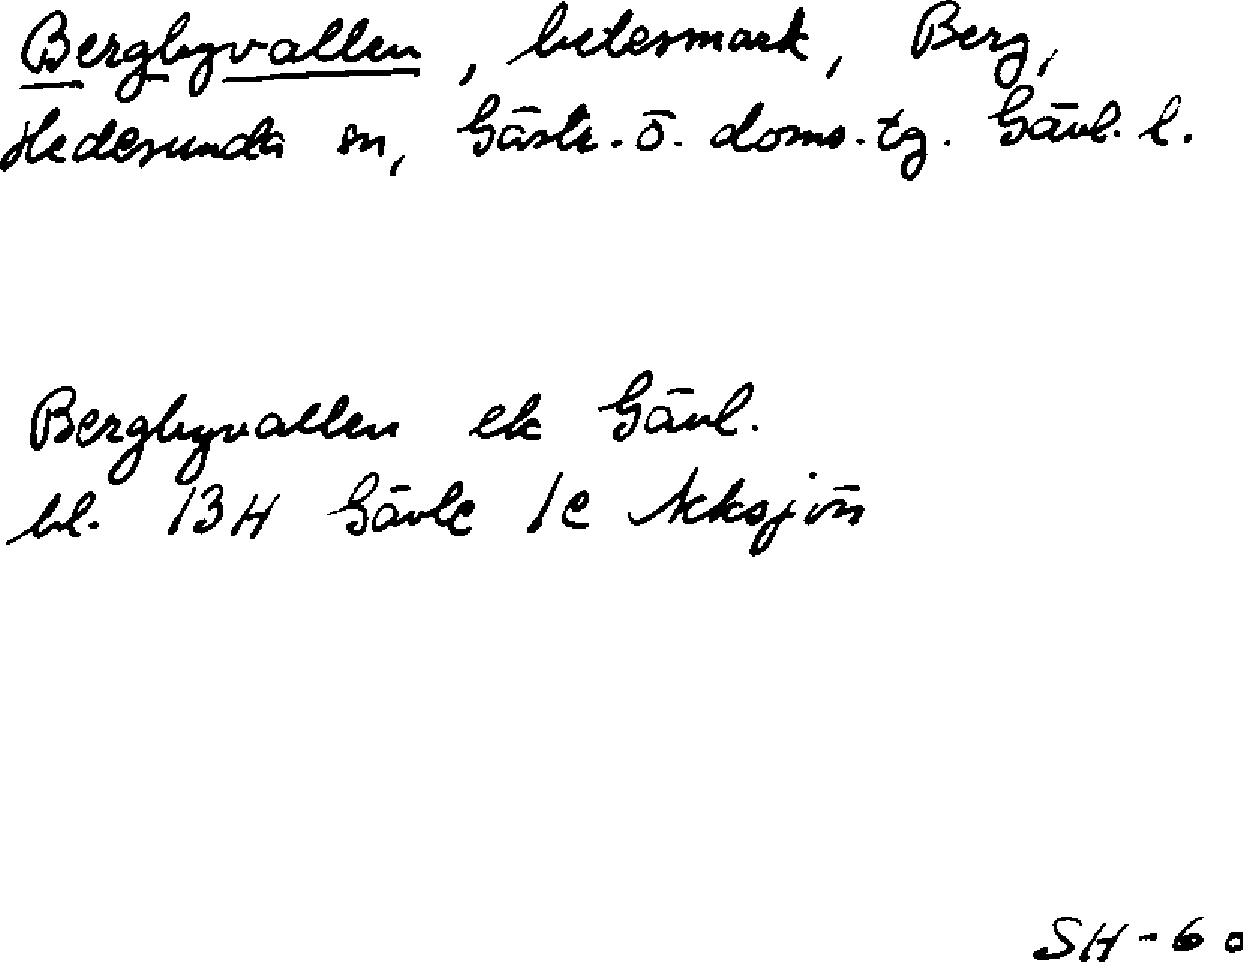 Bergbyvallen, betesmark, Berg,
Hedesunda sn, Gästr. ö. doms. tg. Gävl. l.
Bergbyvallen ek Gävl.
bl. 13H Gävle 1c Akksjön
SH-60